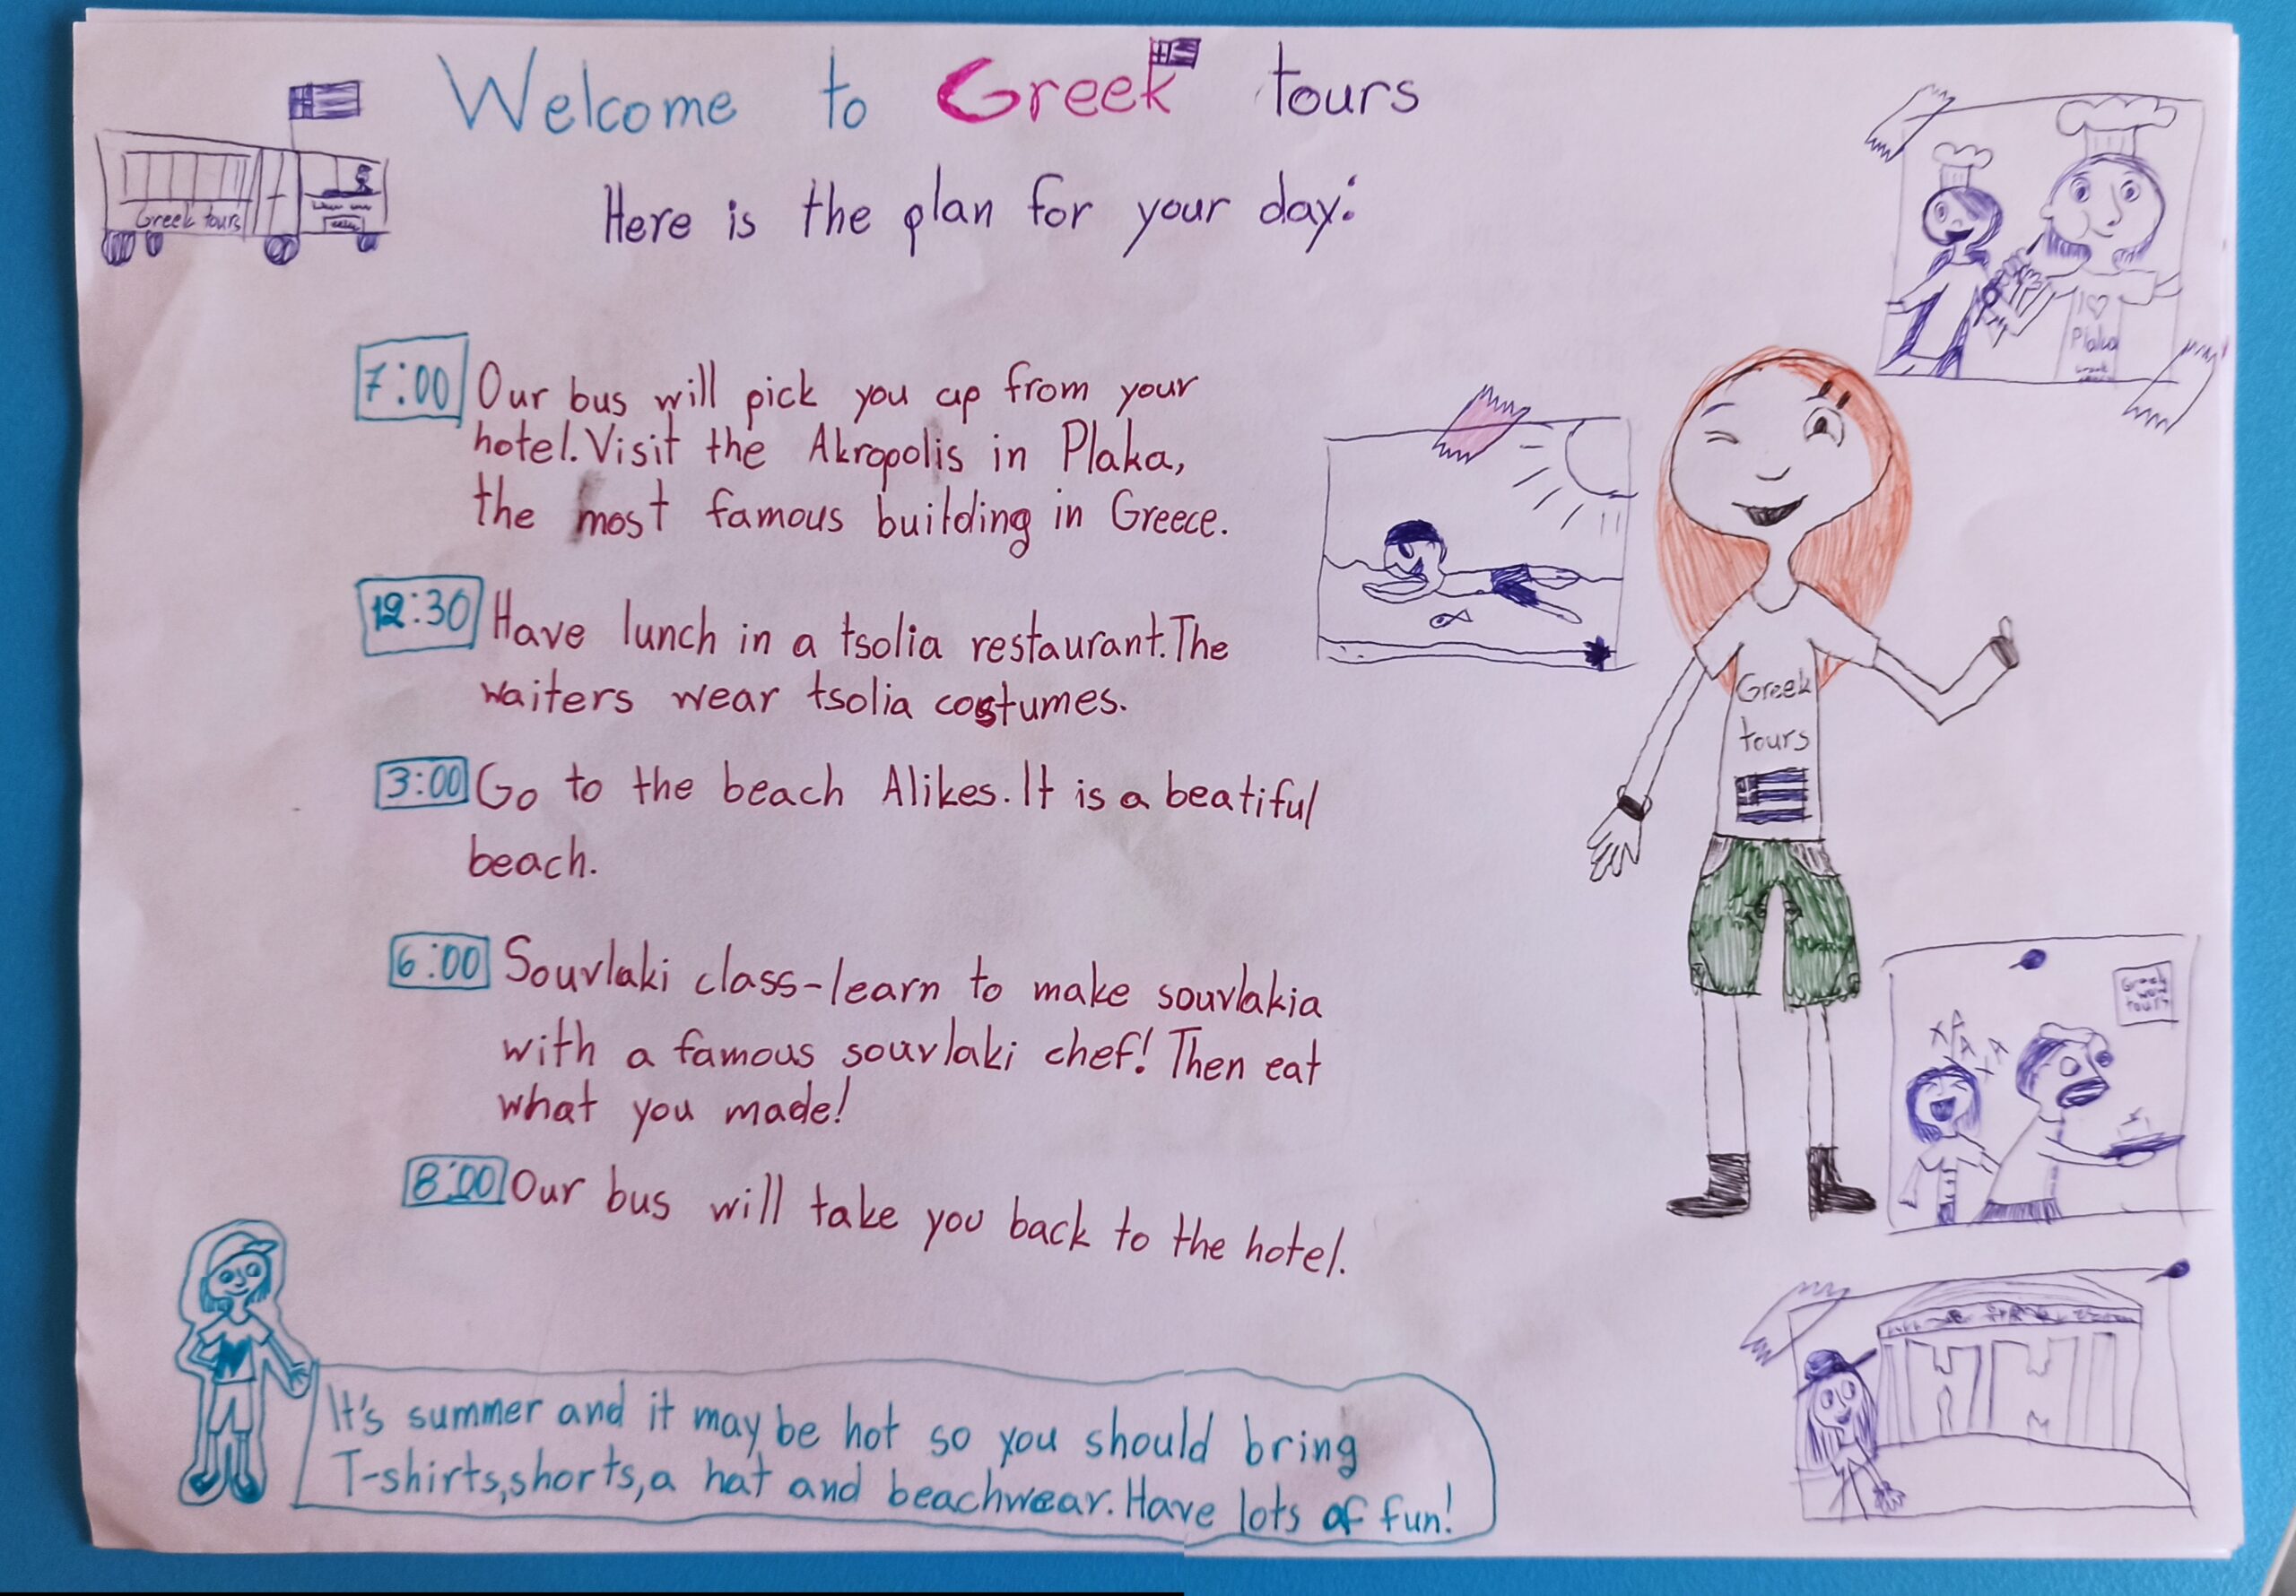 Welcome to Greek tours
Here is the plan for your day:
Greek tours
7:00 Our bus will pick you up from your
hotel. Visit the Akropolis in Plaka,
the most famous building in Greece.
12:30 Have lunch in a tsolia restaurant. The
waiters wear tsolia costumes.
3:00 Go to the beach Alikes. It is a beatiful
beach.
6:00 Souvlaki class-learn to make souvlakia
with a famous souvlaki chef! Then eat
what you made!
8:00 Our bus will take you back to the hotel.
It's summer and it may be hot so you should bring
T-shirts, shorts, a hat and beachwear. Have lots of fun!
I ♡
Plaka
Greek
tours
Greek
tours
XA
XA